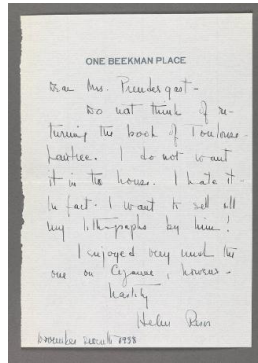 ONE BEEKMAN PLACE
Dear Mrs. Prendergast -
Do not think of re-
turning the book of Toulouse-
Lautrec. I do not want
it in the house. I hate it.
In fact I want to sell all
my lithographs by him!
I enjoyed very much the
one on Cezanne, however -
Hastily
Helen
November 1938